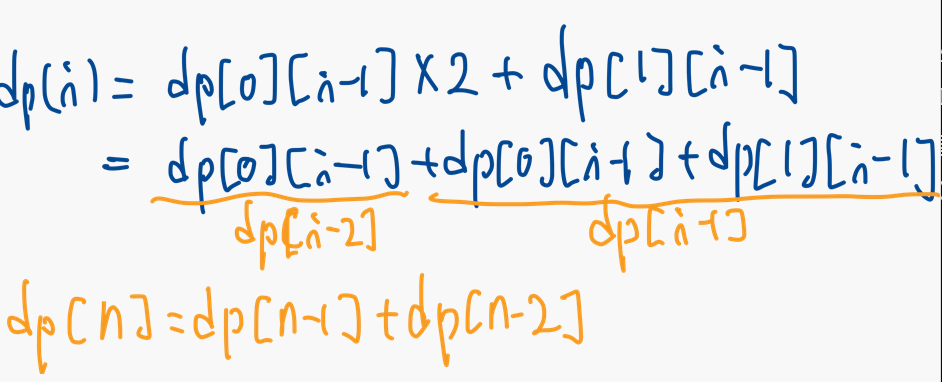 dp(i) = dp[0][i-1] × 2 + dp[1][i-1]
= dp[0][i-1] + dp[0][i-1] + dp[1][i-1]
dp[i-2] dp[i-1]
dp[n] = dp[n-1] + dp[n-2]